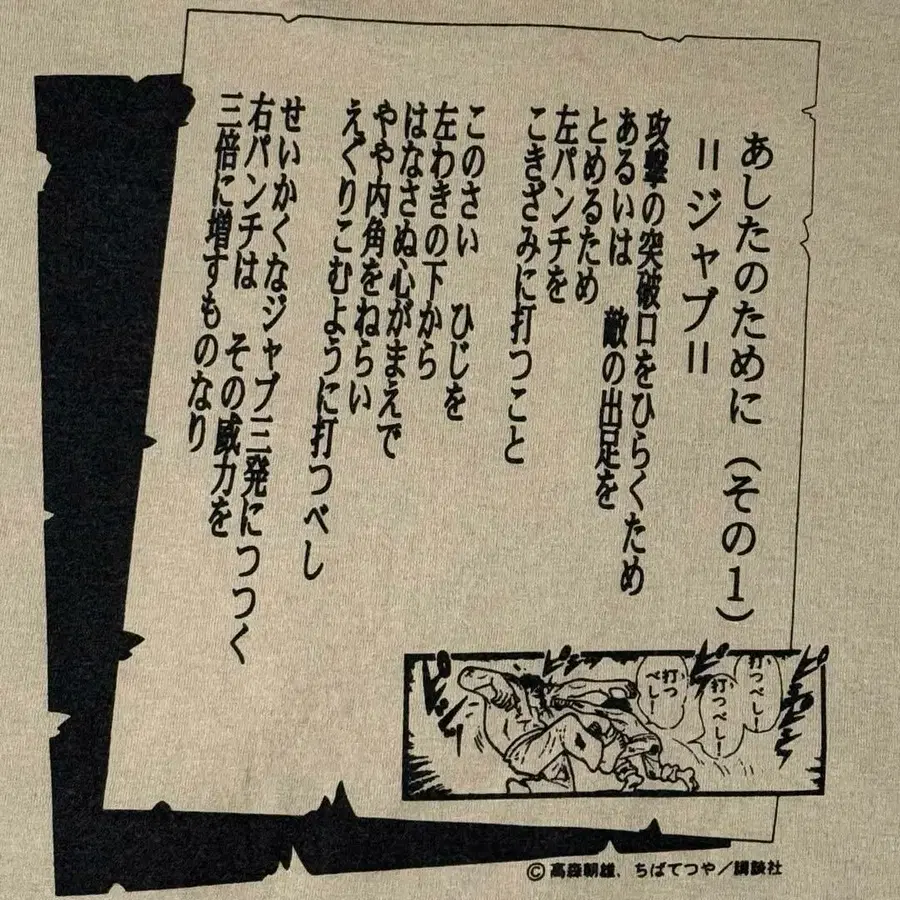 あしたのために（その1）
＝ジャブ＝
攻撃の突破口をひらくため
あるいは　敵の出足を
とめるため
左パンチを
こきざみに打つこと
このさい　ひじを
左わきの下から
はなさぬ心がまえで
やや内角をねらい
えぐりこむように打つべし
せいかくなジャブ三発につづく
右パンチは　その威力を
三倍に増すものなり
打つべし！
打つべし！
打つべし！
©高森朝雄、ちばてつや／講談社